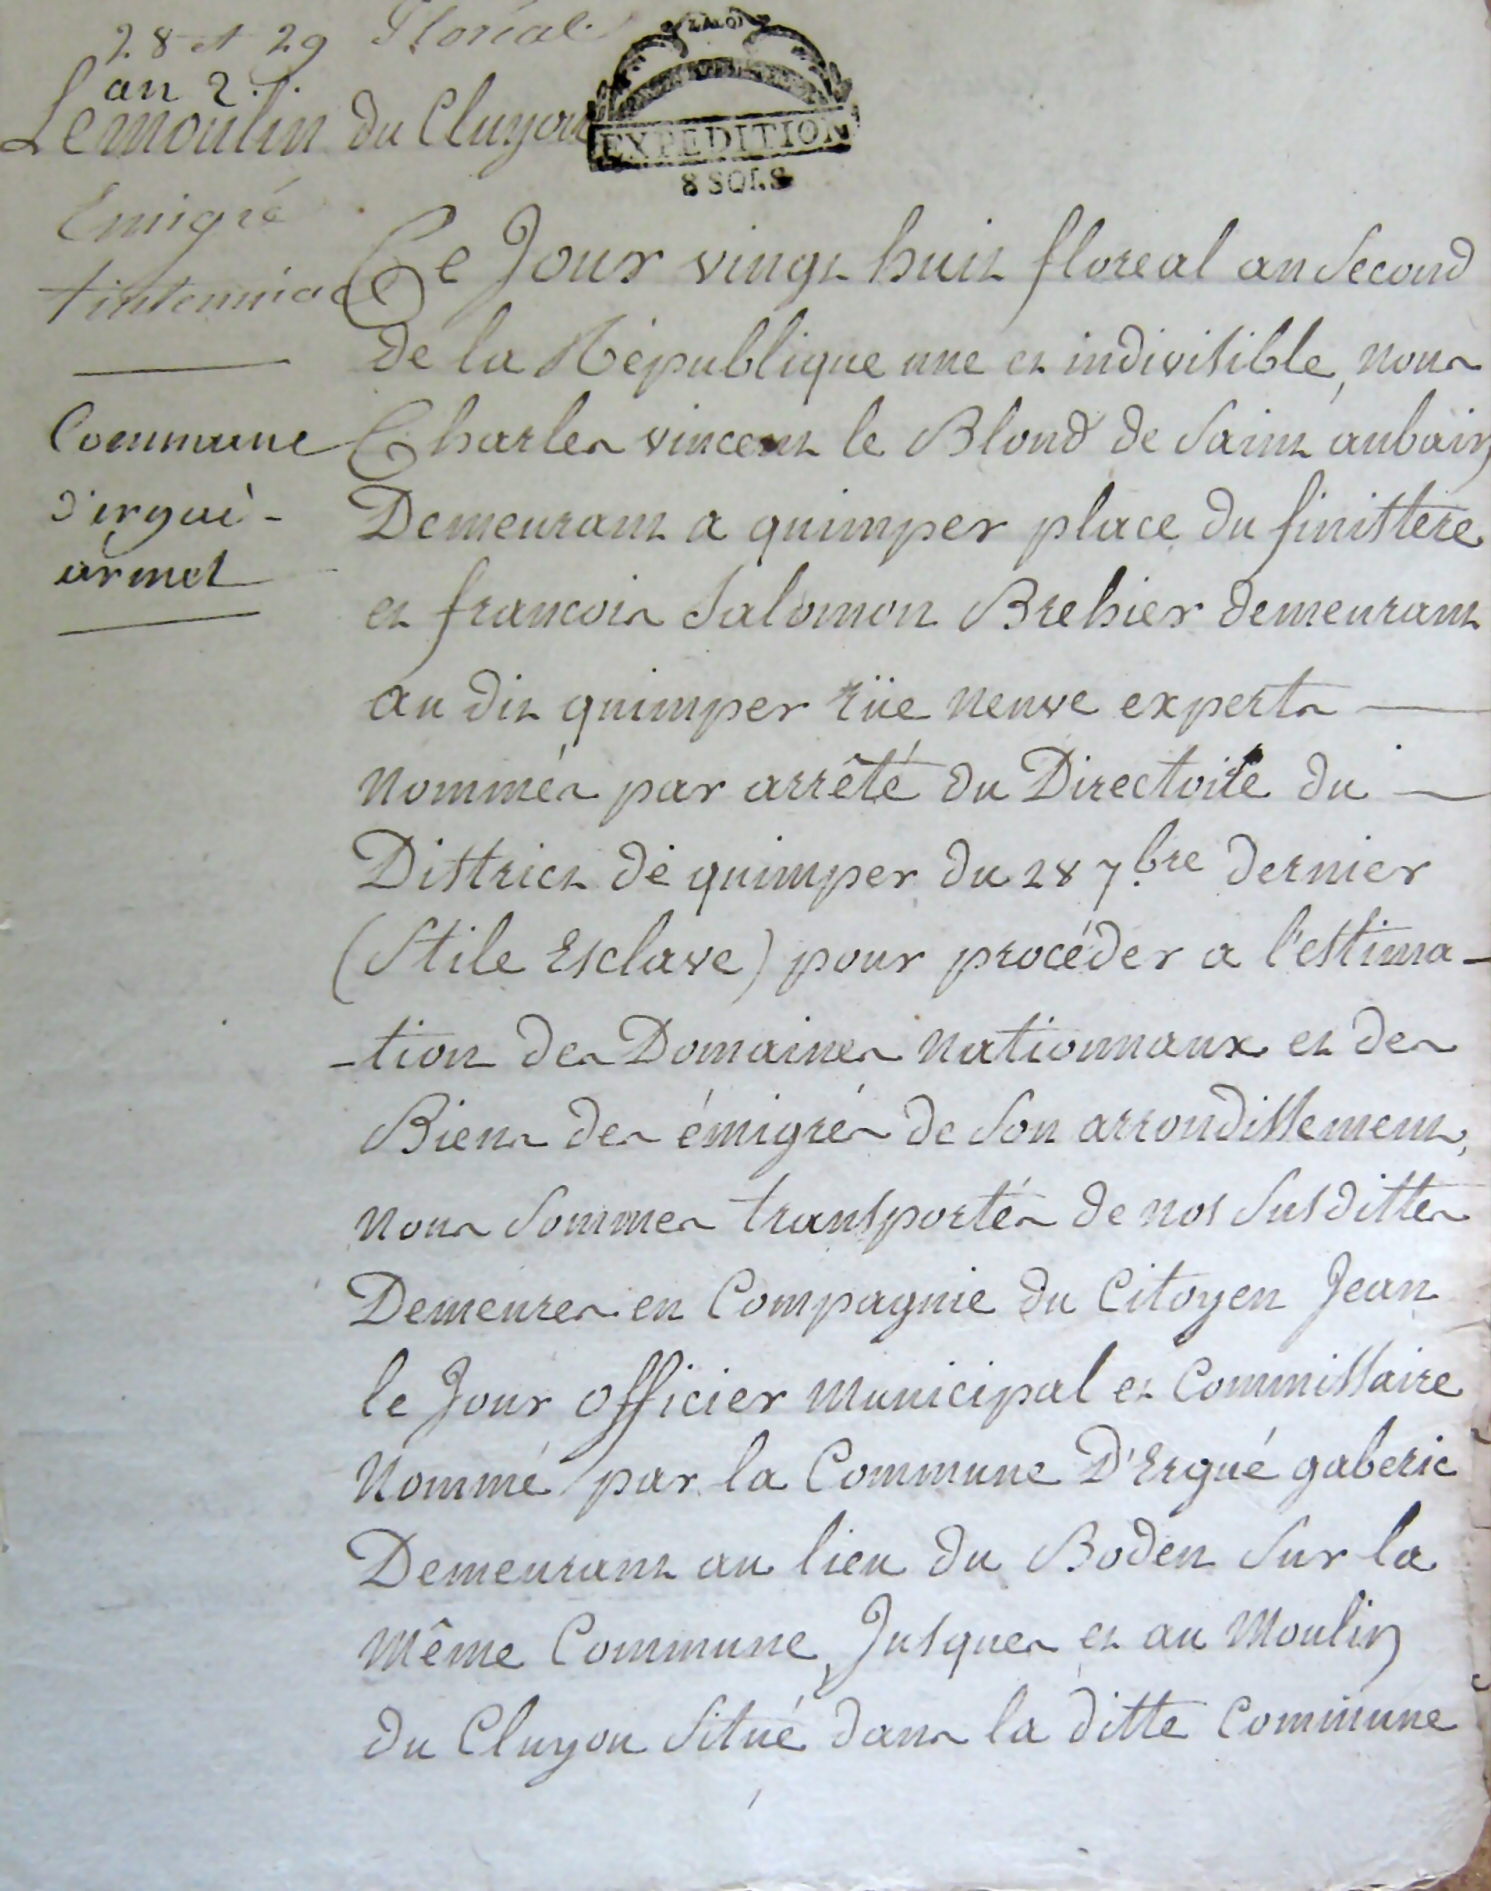 28 et 29 Floréal
an 2.
Le moulin du Cluyou
Emigré
tinteniac
Commune
d'ergué-
armel
LA LOI
EXPEDITION
8 SOLS
Ce Jour vingt huit floreal an Second
de la République une et indivisible, nous
Charles vincent le Blond de Saint aubain
Demeurant a quimper place du finistere
et francois Salomon Brehier demeurant
au dit quimper rüe neuve experts
nommés par arrêté du Directoire du
District de quimper du 28 7.bre dernier
(Stile Esclave) pour procéder a l'estima-
-tion des Domaines nationnaux et des
Biens des émigrés de Son arrondissement,
nous Sommes transportés de nos Susdittes
Demeures en Compagnie du Citoyen Jean
le Jour officier municipal et Commissaire
nommé par la Commune D'Ergué gaberic
Demeurant au lieu du Boden Sur la
même Commune, Jusques et au Moulin
du Cluyou Situé dans la ditte Commune